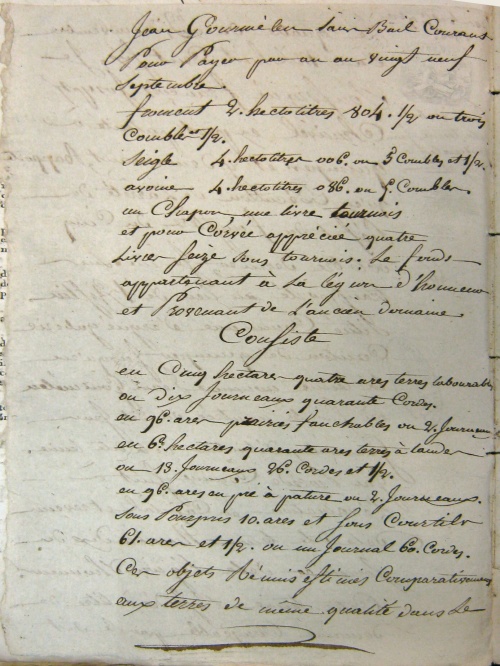 Jean Gourmelen sans Bail Courant
Pour Payer par an au vingt neuf
Septembre
froment 2. hectolitres 804. 1/2 ou trois
Combles 1/2.
Seigle 4. hectolitres 006. ou 5 Combles et 1/2.
avoine 4. hectolitres 086. ou 5. Combles.
un Chapon une livre tournois
et pour Corvée appréciée quatre
Livres Seize Sous tournois. Le fonds
appartenant à La légion d'honneur
et Provenant de L'ancien domaine
Consiste
en Cinq hectares quatre ares terres labourables
ou Dix Journeaux quarante Cordes.
en 96. ares prairies fauchables ou 2. Journeaux
en 6. hectares quarante ares terres à landes
ou 13. Journeaux 26. Cordes et 1/2.
en 96. ares en pré à pature ou 2. Journeaux.
Sous Pourpris 10. ares et Sous Courtils
61. ares et 1/2. ou un Journal 60. Cordes.
Ces objets Réunis estimés Comparativement
aux terres de même qualité dans Le